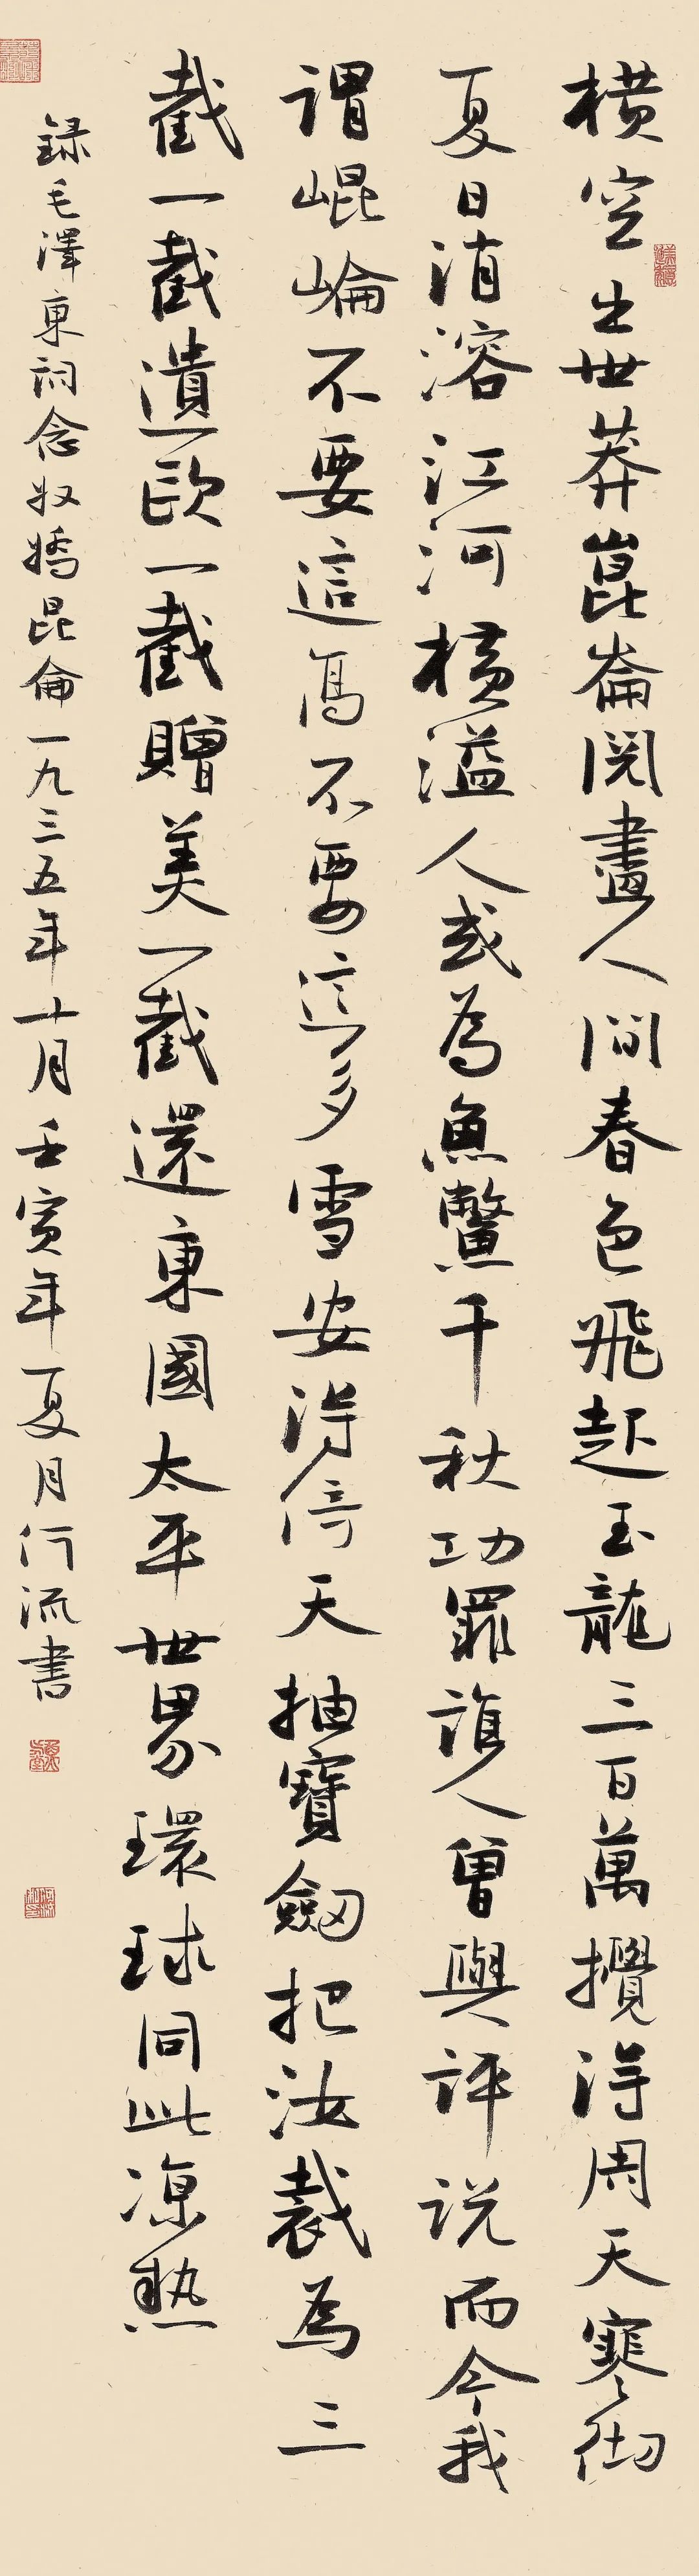 橫空出世莽崑崙閱盡人間春色飛起玉龍三百萬攪得周天寒徹
夏日消溶江河橫溢人或為魚鱉千秋功罪誰人曾與評說而今我
謂崐崘不要這高不要這多雪安得倚天抽寶劔把汝裁為三
截一截遺歐一截贈美一截還東國太平世界環球同此凉熱
録毛澤東詞念奴嬌昆侖一九三五年十月壬寅年夏月何流書